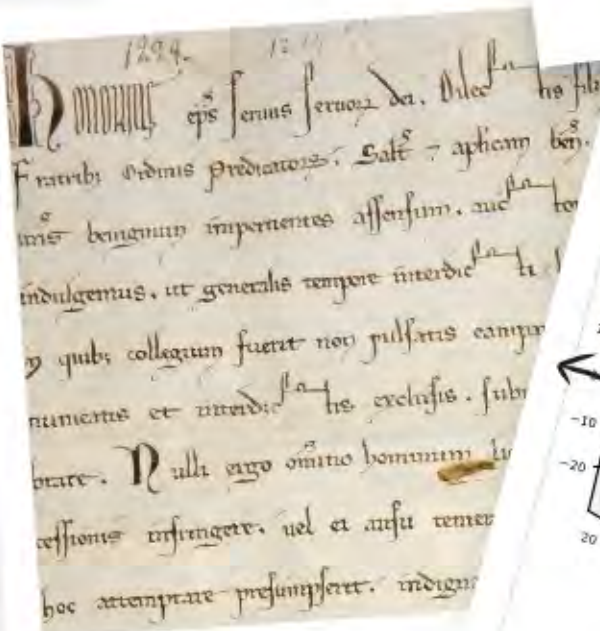 1224.
Honorius eps seruus seruoꝝ dei. Dilectis fili
Fratribꝫ Ordinis Predicatoꝝ. Salt ⁊ aplicam ben.
uris benignum impertientes assensum. auctor
indulgemus. ut generalis tempore interdicti
quibꝫ collegium fuerit non pulsatis campan
nunicatis et interdictis exclusis. subm
brare. Nulli ergo omnino hominum li
cessionis infringere. uel ei ausu temer
hoc attemptare presumpserit. indigna
-10
-20
20